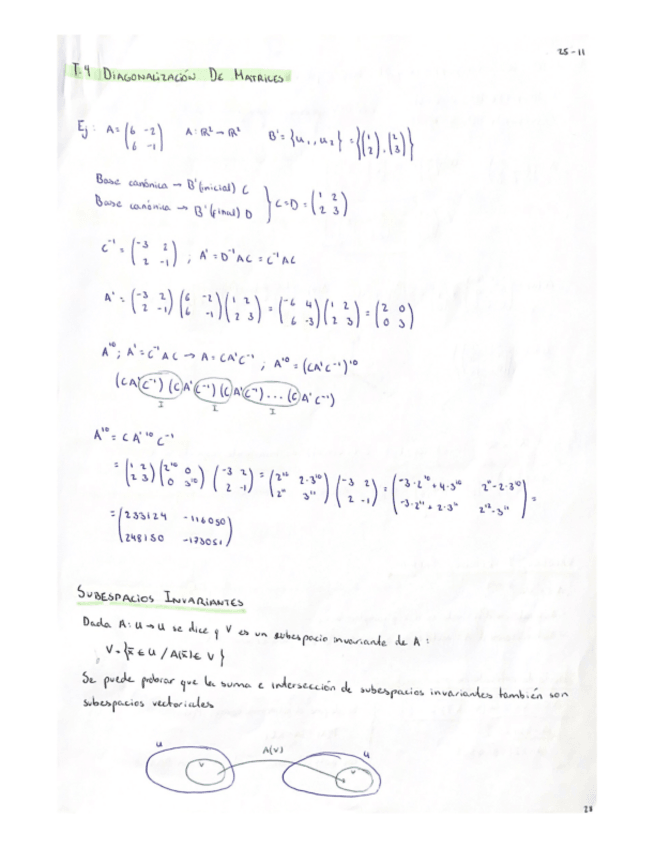 25-11
T.4 DIAGONALIZACIÓN DE MATRICES
Ej: A=(6 -2 / 6 -1) A:ℝ²→ℝ² B'={u₁,u₂}={(1 / 2),(2 / 3)}
Base canónica → B'(inicial) C
Base canónica → B'(final) D } C=D=(1 2 / 2 3)
C⁻¹=(-3 2 / 2 -1); A'=D⁻¹AC=C⁻¹AC
A'=(-3 2 / 2 -1)(6 -2 / 6 -1)(1 2 / 2 3)=(-6 4 / 6 -3)(1 2 / 2 3)=(2 0 / 0 3)
A¹⁰; A'=C⁻¹AC → A=CA'C⁻¹; A¹⁰=(CA'C⁻¹)¹⁰
(CA'C⁻¹)(CA'C⁻¹)(CA'C⁻¹)...(CA'C⁻¹)
I I I
A¹⁰=CA'¹⁰C⁻¹
=(1 2 / 2 3)(2¹⁰ 0 / 0 3¹⁰)(-3 2 / 2 -1)=(2¹⁰ 2·3¹⁰ / 2¹¹ 3¹¹)(-3 2 / 2 -1)=(-3·2¹⁰+4·3¹⁰ 2¹¹-2·3¹⁰ / -3·2¹¹+2·3¹¹ 2¹²-3¹¹)=
=(233124 -116050 / 248150 -173051)
SUBESPACIOS INVARIANTES
Dada A:U→U se dice q V es un subespacio invariante de A:
V={x̄∈U/A(x̄)∈V}
Se puede probrar que la suma e intersección de subespacios invariantes también son
subespacios vectoriales
U A(V) U
V V